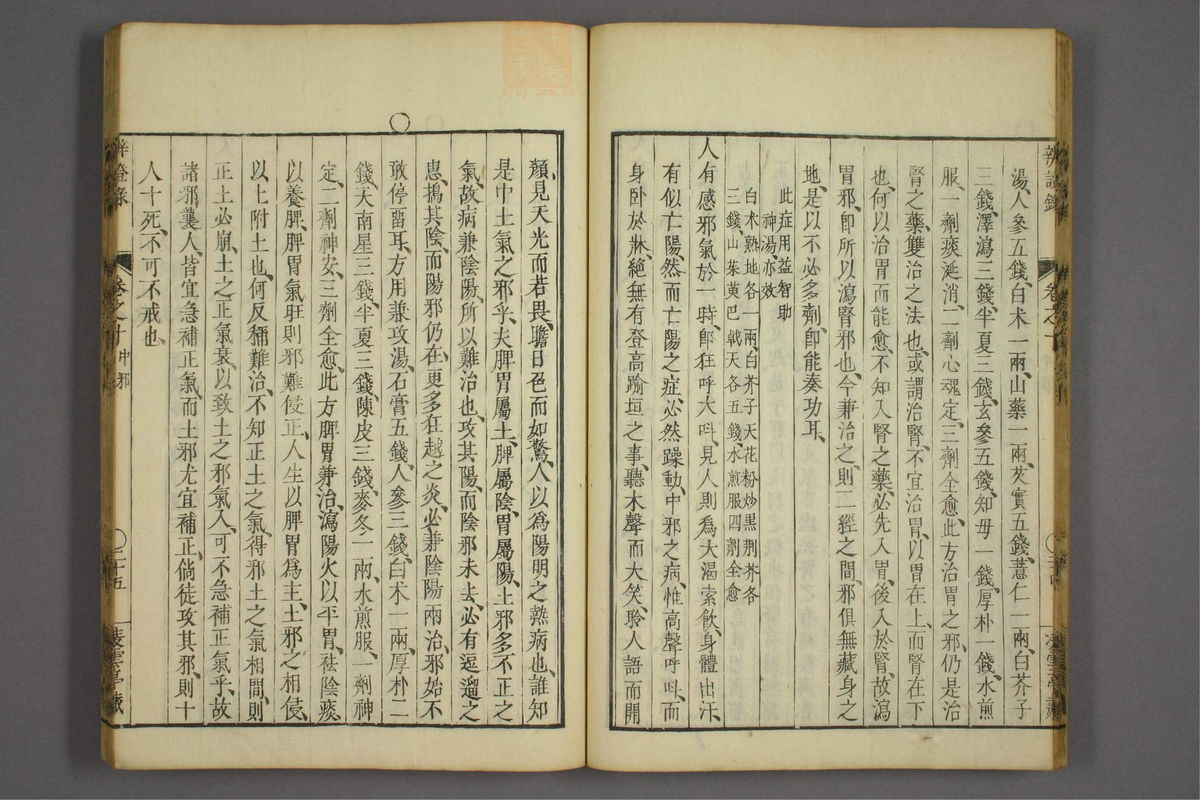 湯、人參五錢、白术一兩、山藥一兩、芡實五錢、薏仁一兩、白芥子
三錢、澤瀉三錢、半夏三錢、玄參五錢、知母一錢、厚朴一錢、水煎
服、一劑痰涎消、二劑心魂定、三劑全愈、此方治胃之邪、仍是治
腎之藥、雙治之法也、或謂治腎、不宜治胃、以胃在上、而腎在下
也、何以治胃而能愈、不知入腎之藥、必先入胃、後入於腎、故瀉
胃邪、即所以瀉腎邪也、今兼治之、則二經之間、邪俱無藏身之
地、是以不必多劑、即能奏功耳、
此症用益智助
神湯、亦效
白术熟地各一兩、白芥子天花粉炒黑荆芥各
三錢、山茱萸巴戟天各五錢、水煎服四劑全愈
人有感邪氣於一時、卽狂呼大呌、見人則罵、大渴索飲、身體出汗、
有似亡陽、然而亡陽之症、必然躁動、中邪之病、惟高聲呼呌、而
身卧於牀、絕無有登高踰垣之事、聽木聲而大笑、聆人語而開
顏、見天光而若畏、瞻日色而如驚、人以爲陽明之熱病也、誰知
是中土氣之邪乎、夫脾胃屬土、脾屬陰、胃屬陽、土邪多不正之
氣、故病兼陰陽、所以難治也、攻其陽、而陰邪未去、必有逗遛之
患、搗其陰、而陽邪仍在、更多狂越之炎、必兼陰陽兩治、邪始不
敢停留耳、方用兼攻湯、石膏五錢、人參三錢、白术一兩、厚朴二
錢、天南星三錢、半夏三錢、陳皮三錢、麥冬一兩、水煎服、一劑神
定、二劑神安、三劑全愈、此方脾胃兼治、瀉陽火以平胃、祛陰痰
以養脾、脾胃氣旺則邪難侵正、人生以脾胃爲主、土邪之相侵、
以上附土也、何反稱難治、不知正土之氣、得邪土之氣相間、則
正土必崩、土之正氣衰、以致土之邪氣入、可不急補正氣乎、故
諸邪襲人、皆宜急補正氣、而土邪尤宜補正、倘徒攻其邪、則十
人十死、不可不戒也、
辨證錄 卷之十 中邪 二十五